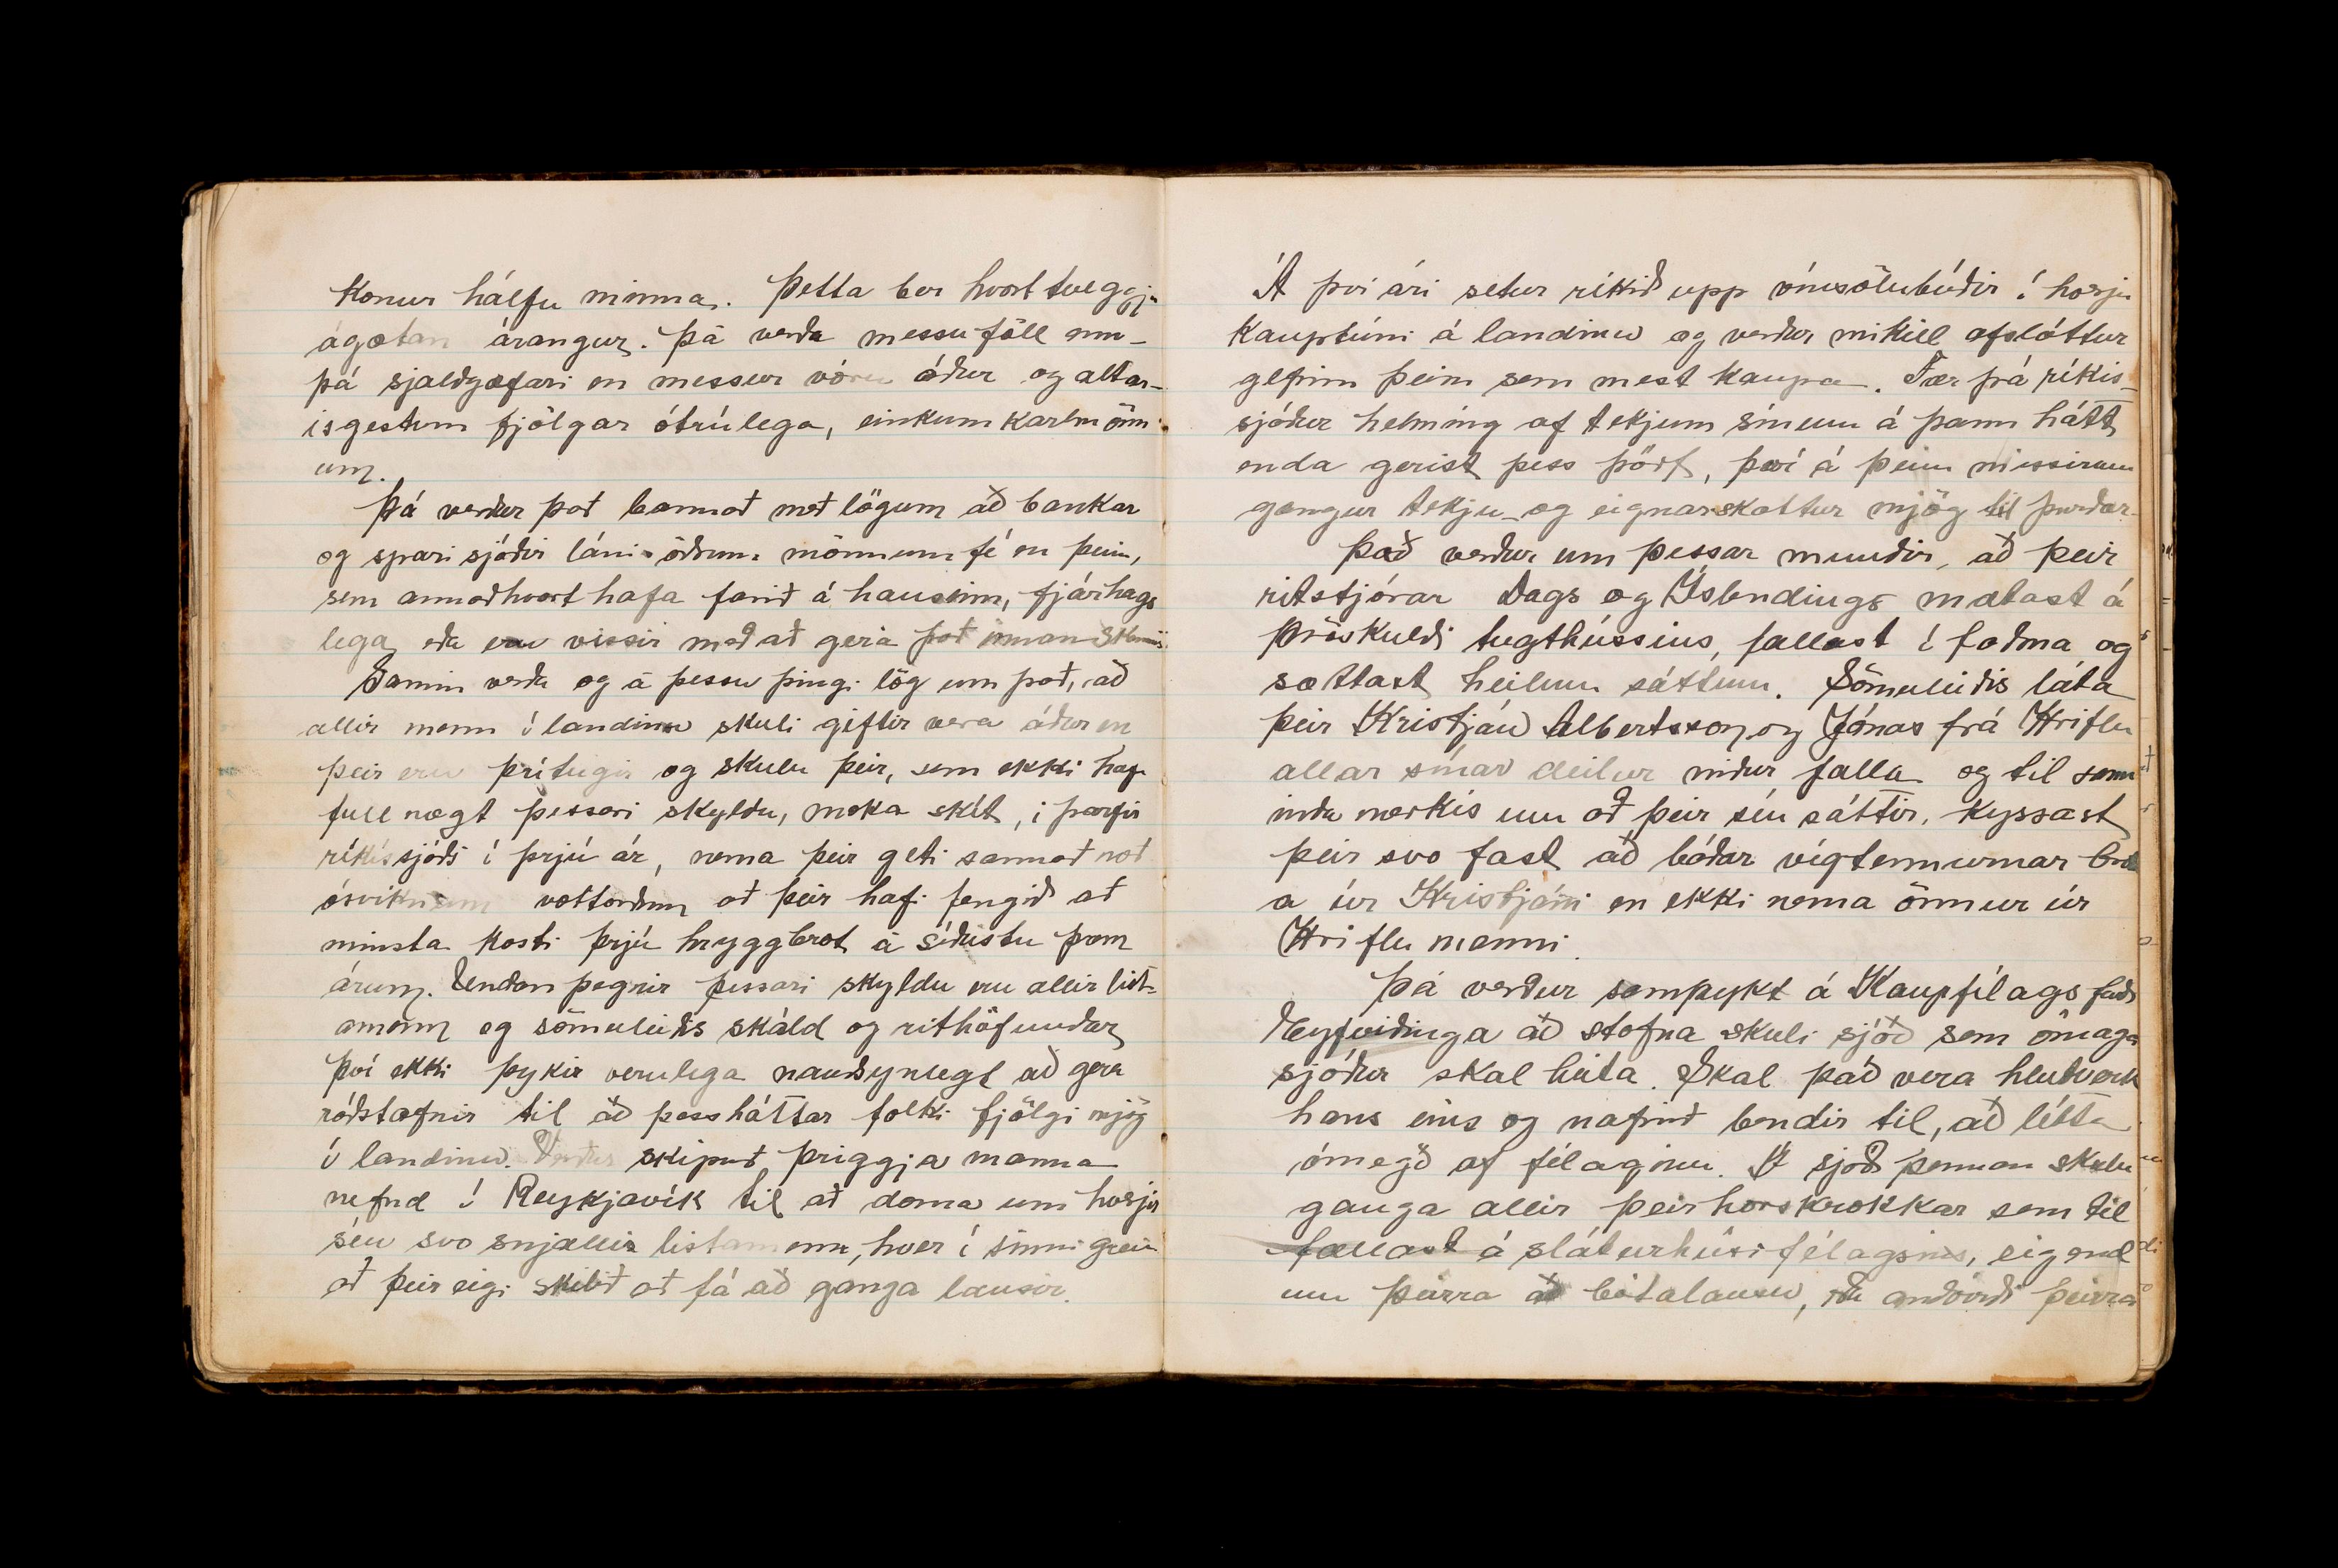 konur hálfu minna. Þetta ber hvort tveggja
ágætan árangur. Þá verða messuföll enn-
þá sjaldgæfari en messur vóru áður og altar-
isgestum fjölgar ótrúlega, einkum karlmönn-
um.
Þá verður það bannað með lögum að bankar
og sparisjóðir láni öðrum mönnum fé en þeim,
sem annaðhvort hafa farið á hausinn, fjárhags
lega, eða eru vissir með að gera það innan skamms.
Samin verða og á þessu þingi lög um það, að
allir menn í landinu skuli giftir vera áður en
þeir eru þrítugir og skulu þeir, sem ekki hafa
fullnægt þessari skyldu, moka skít, í þarfir
ríkissjóðs í þrjú ár, nema þeir geti sannað með
ósviknum vottorðum að þeir hafi fengið að
minsta kosti þrjú hryggbrot á síðustu þrem
árum. Undanþegnir þessari skyldu eru allir list-
amenn og sömuleiðis skáld og rithöfundar
því ekki þykir verulega nauðsynlegt að gera
ráðstafnir til að þessháttar fólki fjölgi mjög
í landinu. Verður skipuð þriggja manna
nefnd í Reykjavík til að dæma um hverjir
séu svo snjallir listamenn, hver í sinni grein
að þeir eigi skilið að fá að ganga lausir.
Á því ári setur ríkið upp vínsölubúðir í hverju
kauptúni á landinu og verður mikill afsláttur
gefinn þeim sem mest kaupa. Fær þá ríkis-
sjóður helming af tekjum sínum á þann hátt,
enda gerist þess þörf, því á þeim missirum
gengur tekju- og eignarskattur mjög til þurðar.
Það verður um þessar mundir, að þeir
ritstjórar Dags og Íslendings mætast á
þröskuldi tugthússins, fallast í faðma og
sættast heilum sáttum. Sömuleiðis láta
þeir Kristján Albertsson og Jónas frá Hriflu
allar sínar deilur niður falla og til sann
inda merkis um að þeir séu sáttir, kyssast
þeir svo fast að báðar vígtennurnar brot
a úr Kristjáni en ekki nema önnur úr
Hriflu manni.
Þá verður samþykt á Kaupfélagsfundi
Eyfirðinga að stofna skuli sjóð sem ómaga
sjóður skal heita. Skal það vera hlutverk
hans eins og nafnið bendir til, að létta
ómegð af félaginu. Í sjóð þennan skulu
ganga allir þeir horskrokkar sem til
fallast á sláturhúsi félagsins, eigend
um þeirra að bótalausu, eða andvirði þeirra